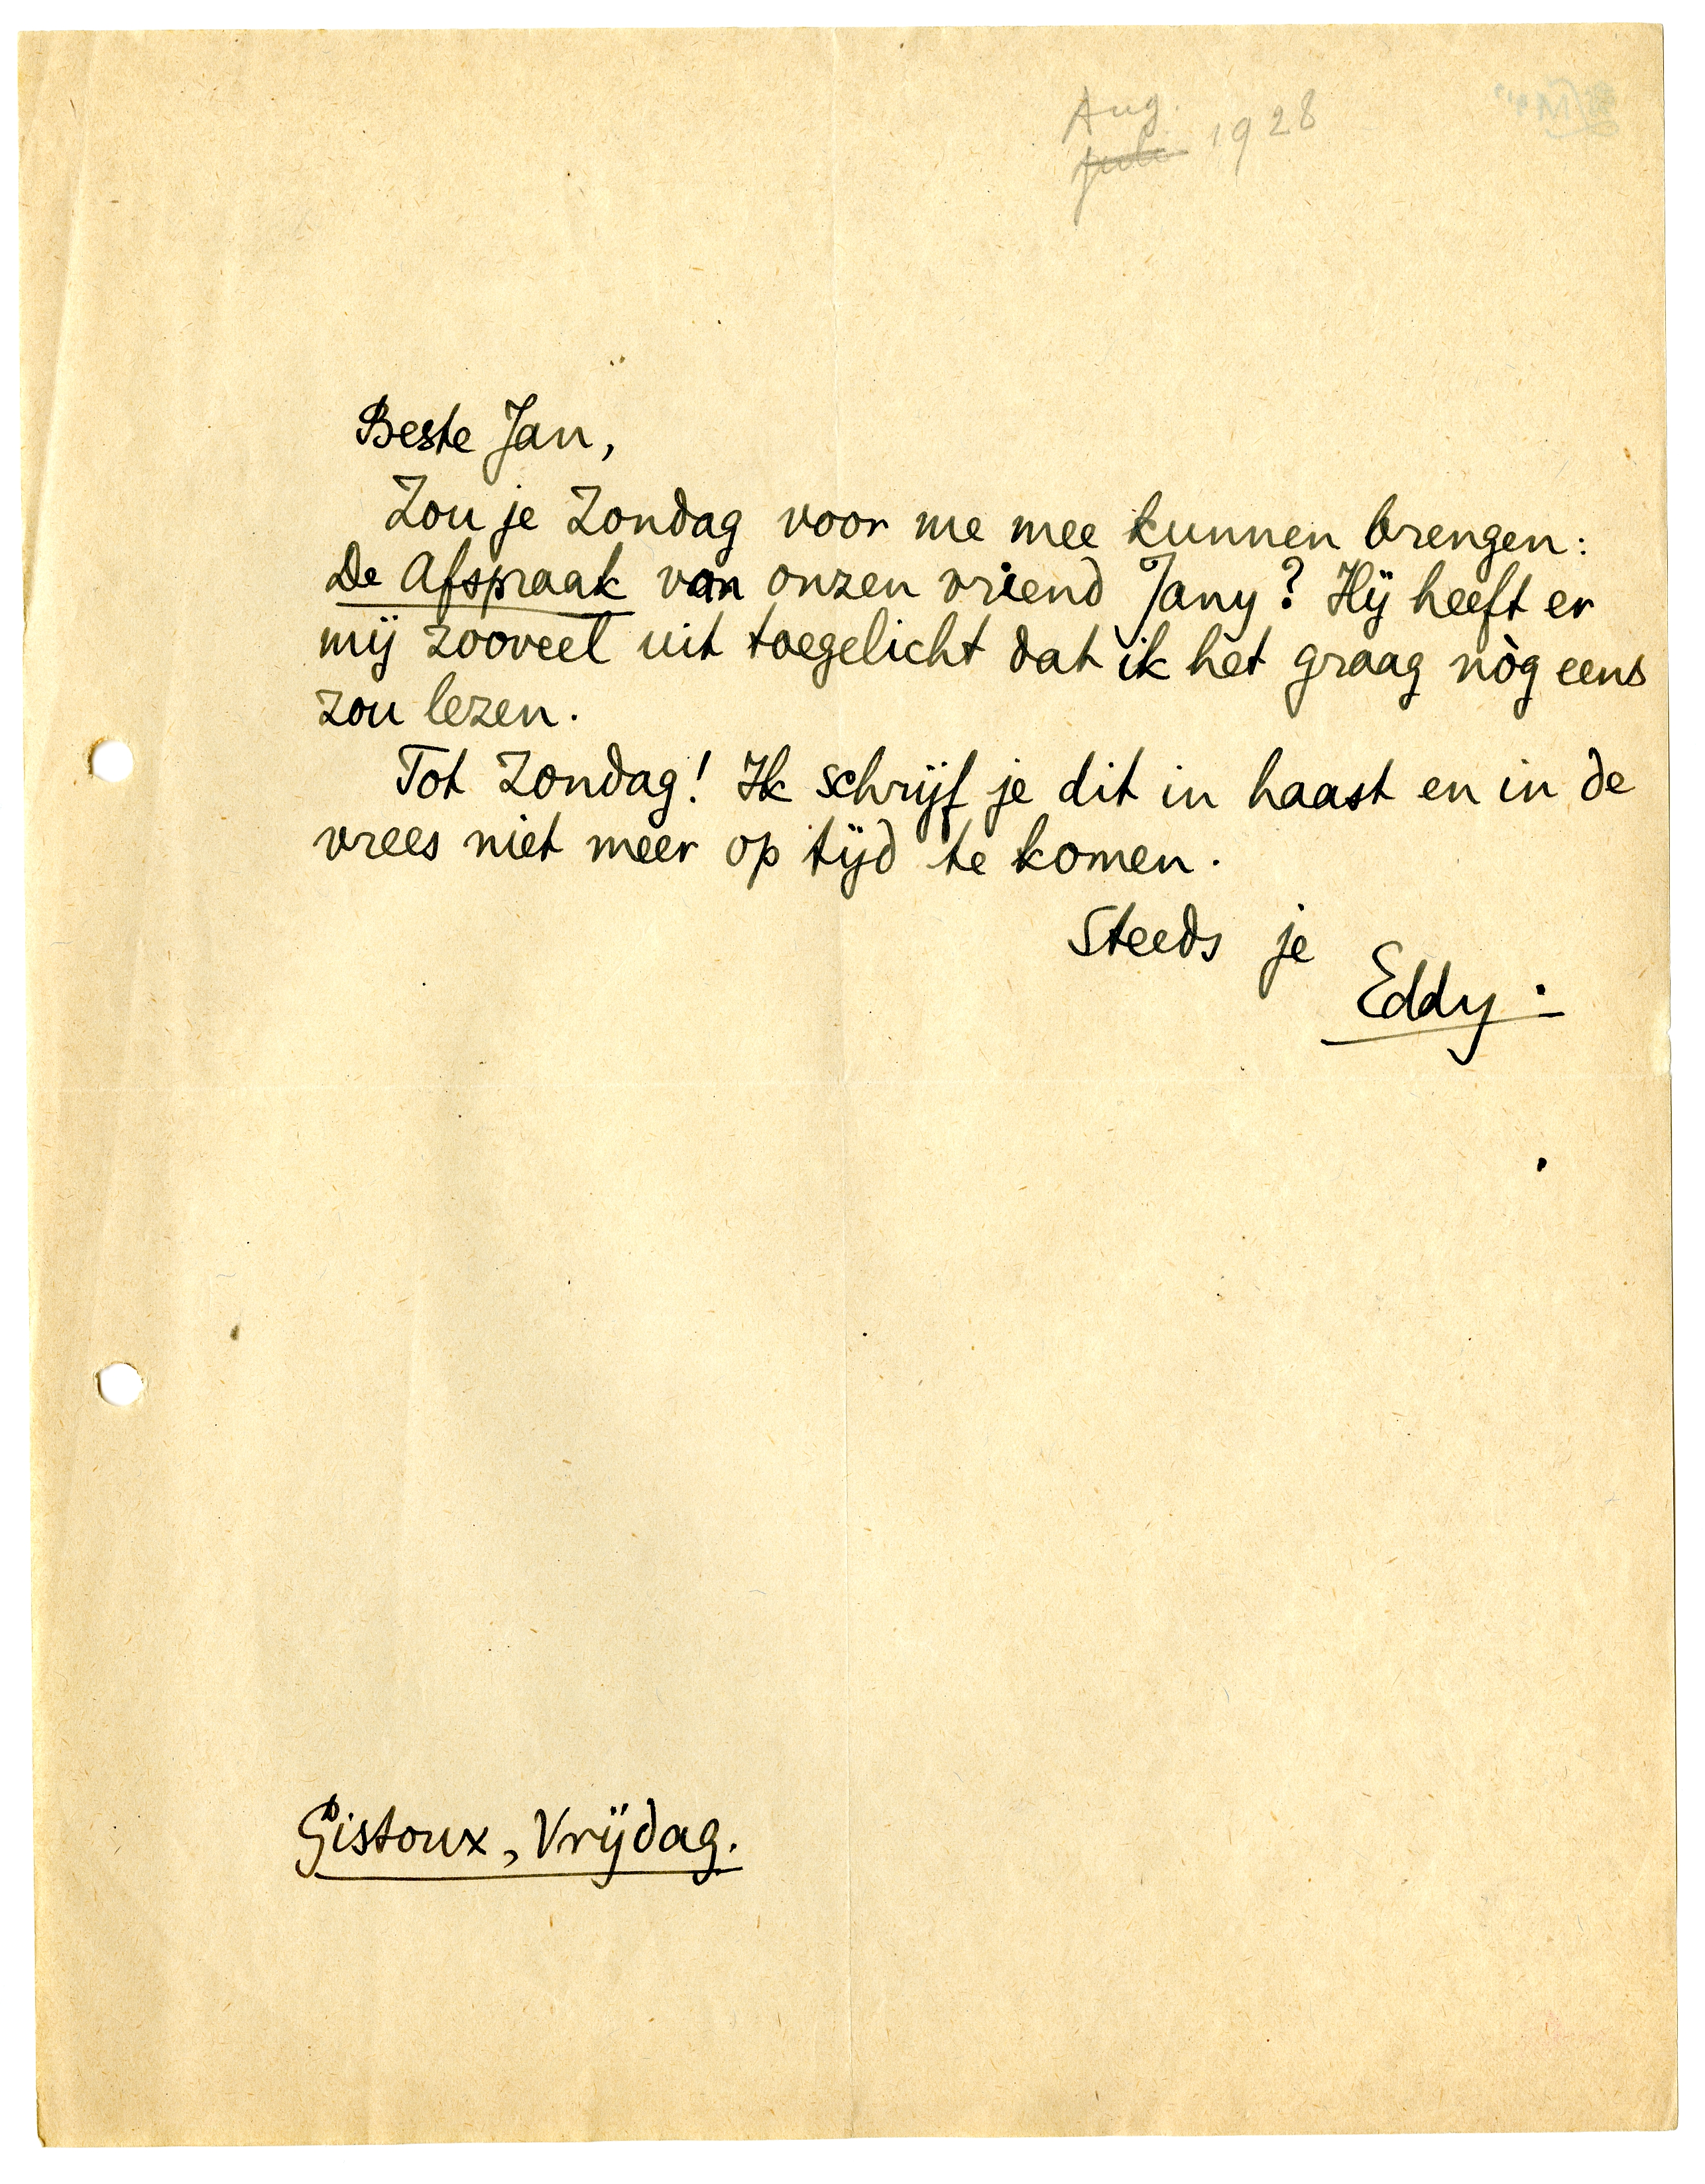 Aug.
Juli 1928
Beste Jan,
Zou je Zondag voor me mee kunnen brengen:
De Afspraak van onzen vriend Jany? Hij heeft er
mij zooveel uit toegelicht dat ik het graag nòg eens
zou lezen.
Tot Zondag! Ik schrijf je dit in haast en in de
vrees niet meer op tijd te komen.
Steeds je
Eddy.
Gistoux, Vrijdag.